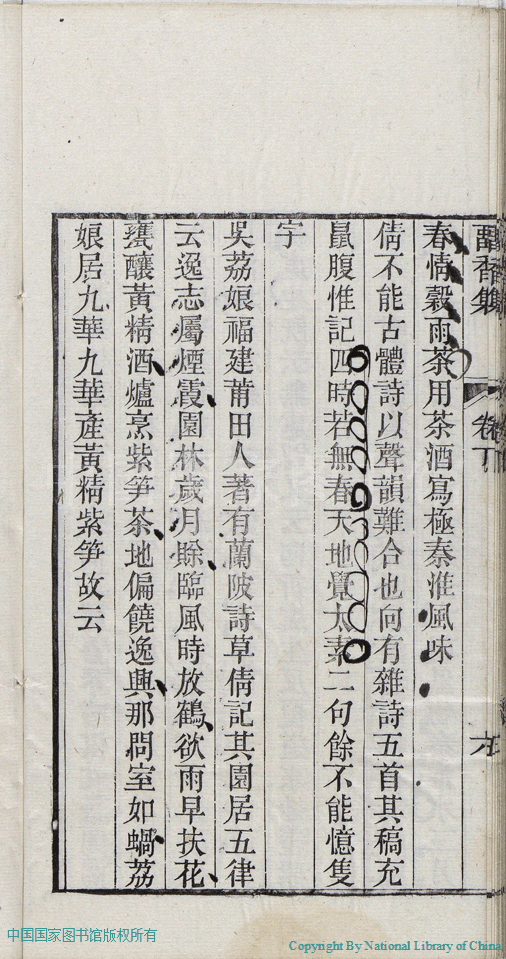 春情穀雨茶用茶酒寫極秦淮風味
倩不能古體詩以聲韻難合也向有雜詩五首其稿充
鼠腹惟記四時若無春天地覺太素二句餘不能憶隻
字
吳荔娘福建莆田人著有蘭陂詩草倩記其園居五律
云逸志屬煙霞園林歲月賒臨風時放鶴欲雨早扶花
甕釀黃精酒爐烹紫筍茶地偏饒逸興那問室如蝸荔
娘居九華九華產黃精紫筍故云
中国国家图书馆版权所有
Copyright By National Library of China